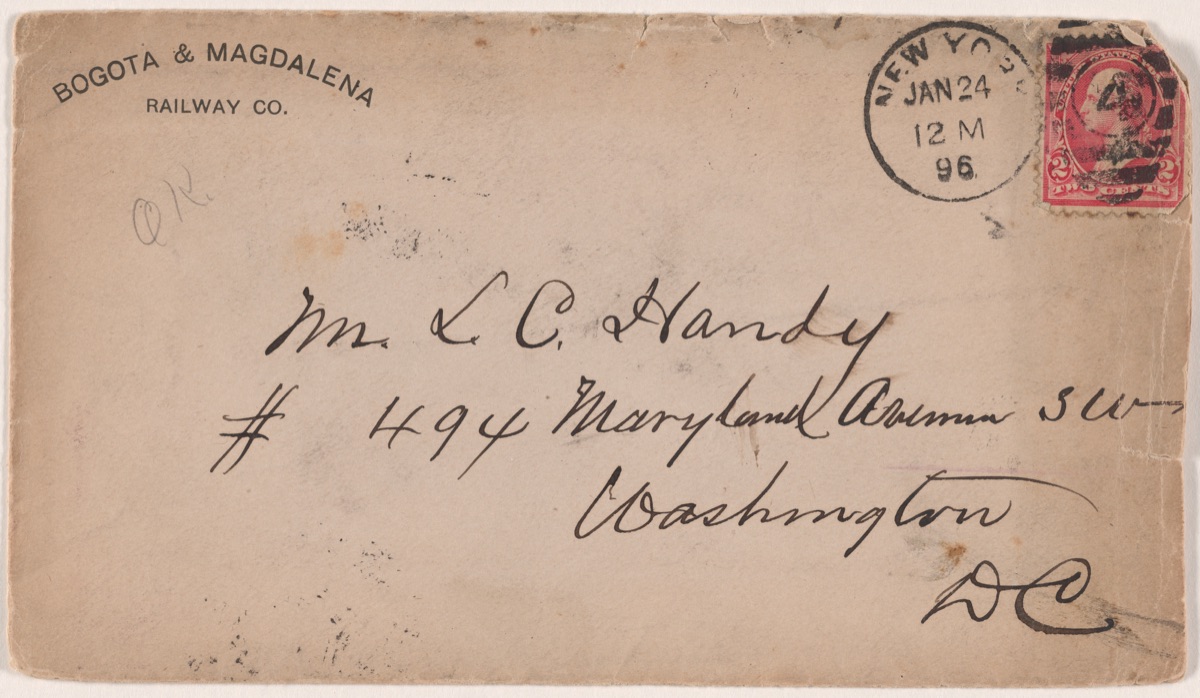 BOGOTA & MAGDALENA
RAILWAY CO.
NEW YORK
JAN 24
12 M
96
4
2 2
TWO CENTS
OK.
Mr. L. C. Handy
# 494 Maryland Avenue SW
Washington
DC